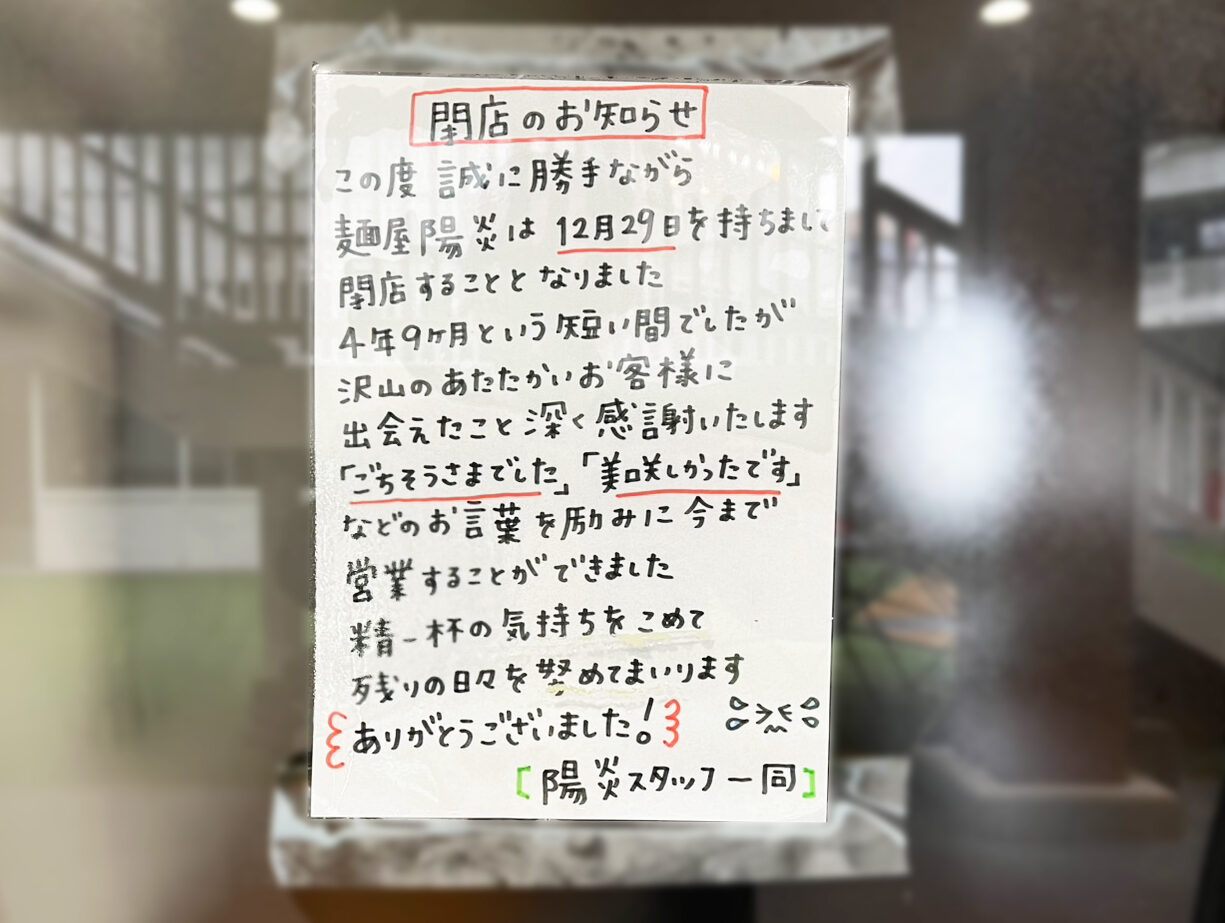 閉店のお知らせ
この度 誠に勝手ながら
麺屋 陽炎は 12月29日を持ちまして
閉店することとなりました
4年9ヶ月という短い間でしたが
沢山のあたたかいお客様に
出会えたこと 深く感謝いたします
「ごちそうさまでした」「美味しかったです」
などのお言葉を励みに今まで
営業することができました
精一杯の気持ちをこめて
残りの日々を努めてまいります
ありがとうございました!
[陽炎スタッフ一同]